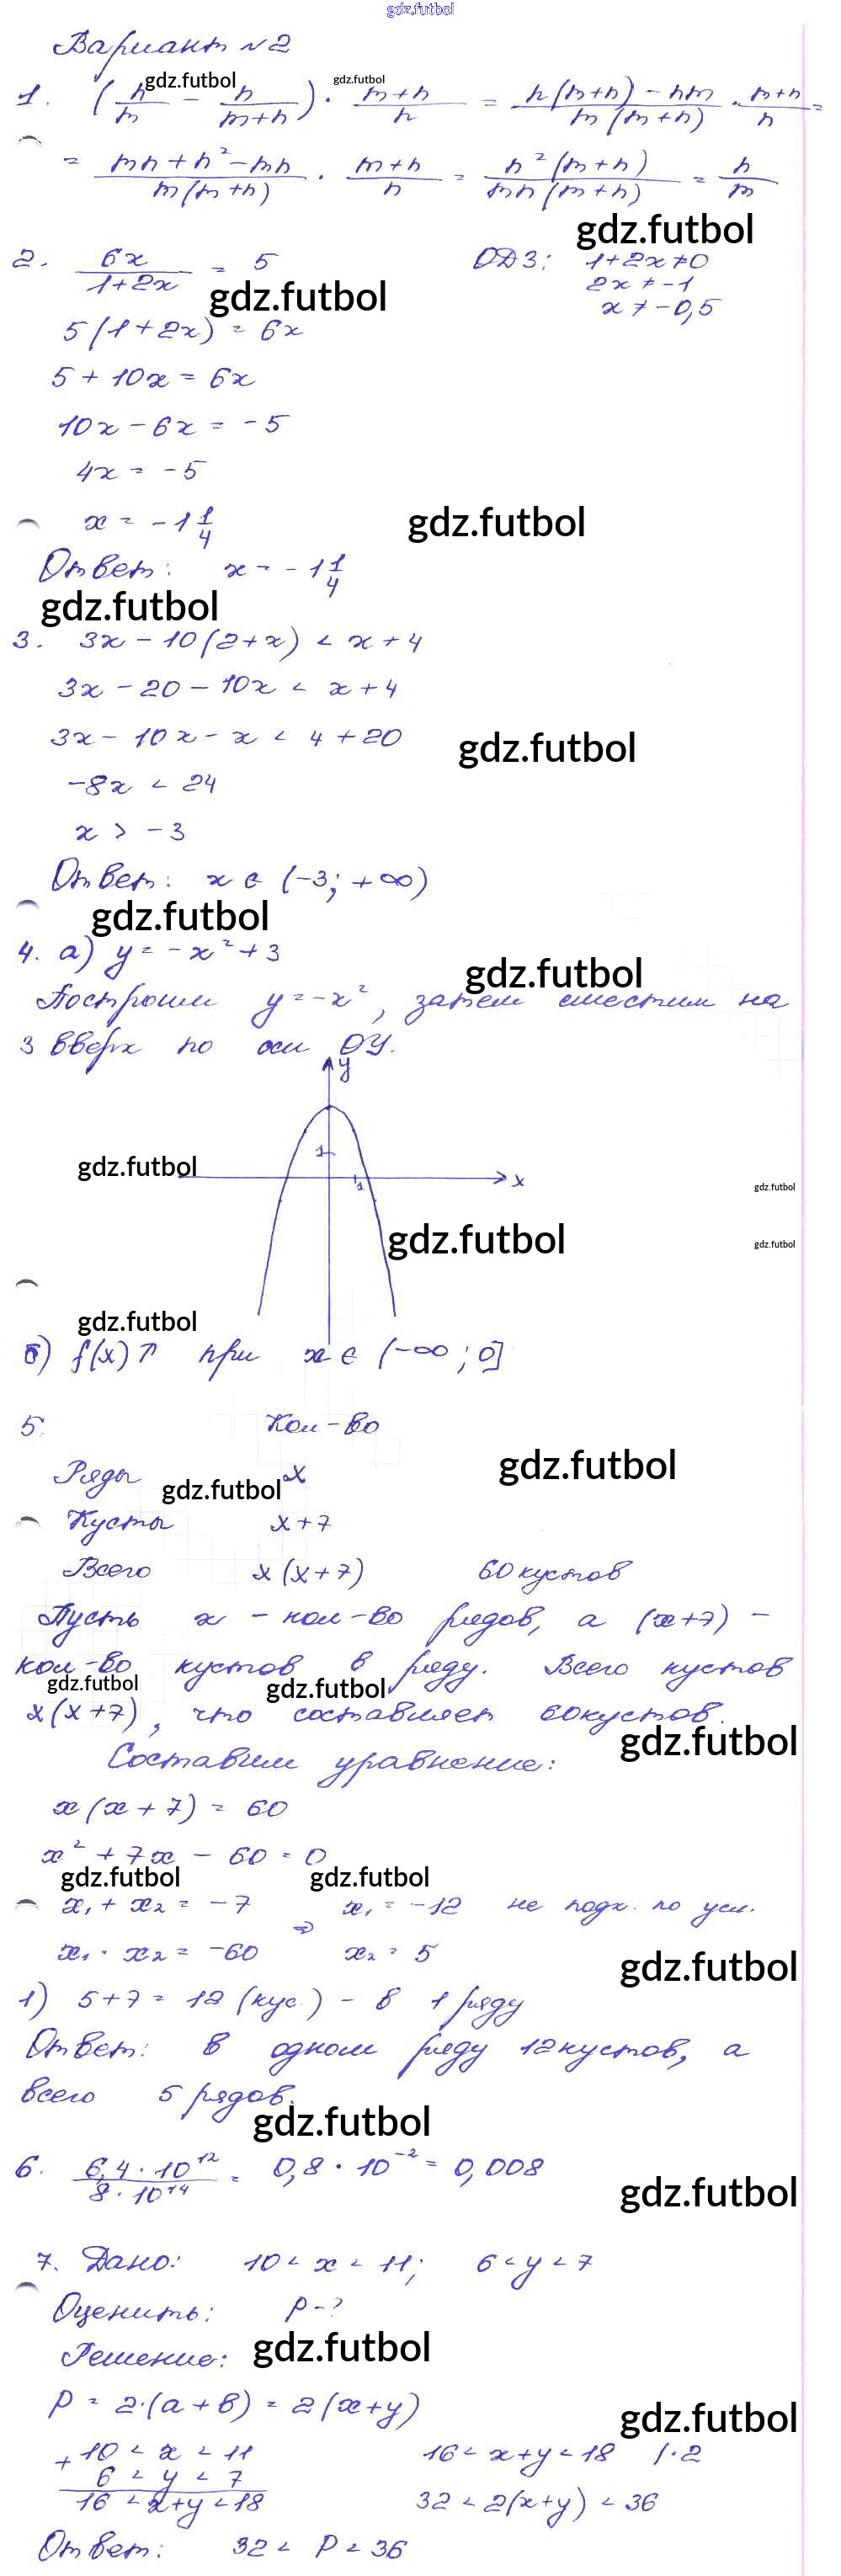 gdz.futbol
Вариант №2
gdz.futbol gdz.futbol
1. (n/m − n/(m+n)) · (m+n)/n = (n(m+n) − nm)/(m(m+n)) · (m+n)/n =
= (mn + n² − mn)/(m(m+n)) · (m+n)/n = n²(m+n)/(mn(m+n)) = n/m
gdz.futbol
2. 6x/(1+2x) = 5 ОДЗ: 1+2x≠0
2x ≠ −1
gdz.futbol
x ≠ −0,5
5(1+2x) = 6x
5 + 10x = 6x
10x − 6x = −5
4x = −5
x = −1 1/4
gdz.futbol
Ответ: x = −1 1/4
gdz.futbol
3. 3x − 10(2+x) < x+4
3x − 20 − 10x < x+4
3x − 10x − x < 4 + 20
gdz.futbol
−8x < 24
x > −3
Ответ: x ∈ (−3; +∞)
gdz.futbol
4. а) y = −x² + 3
gdz.futbol
Построим y = −x², затем сместим на
3 вверх по оси OY.
y
1
gdz.futbol
1 x
gdz.futbol
gdz.futbol
gdz.futbol
gdz.futbol
б) f(x)↑ при x ∈ (−∞; 0]
5. Кол-во
gdz.futbol
Ряды x
gdz.futbol
Кусты x+7
Всего x(x+7) 60 кустов
Пусть x − кол-во рядов, а (x+7) −
кол-во кустов в ряду. Всего кустов
gdz.futbol gdz.futbol
x(x+7), что составляет 60 кустов.
gdz.futbol
Составим уравнение:
x(x+7) = 60
x² + 7x − 60 = 0
gdz.futbol gdz.futbol
x₁ + x₂ = −7 ⇒ x₁ = −12 не подх. по усл.
x₁ · x₂ = −60 x₂ = 5
gdz.futbol
1) 5+7 = 12 (кус.) − в 1 ряду
Ответ: в одном ряду 12 кустов, а
всего 5 рядов.
gdz.futbol
6. 6,4·10¹²/8·10¹⁴ = 0,8·10⁻² = 0,008
gdz.futbol
7. Дано: 10 < x < 11; 6 < y < 7
Оценить: P − ?
Решение:
gdz.futbol
P = 2·(a+b) = 2(x+y)
gdz.futbol
+ 10 < x < 11 16 < x+y < 18 /·2
6 < y < 7
16 < x+y < 18 32 < 2(x+y) < 36
Ответ: 32 < P < 36